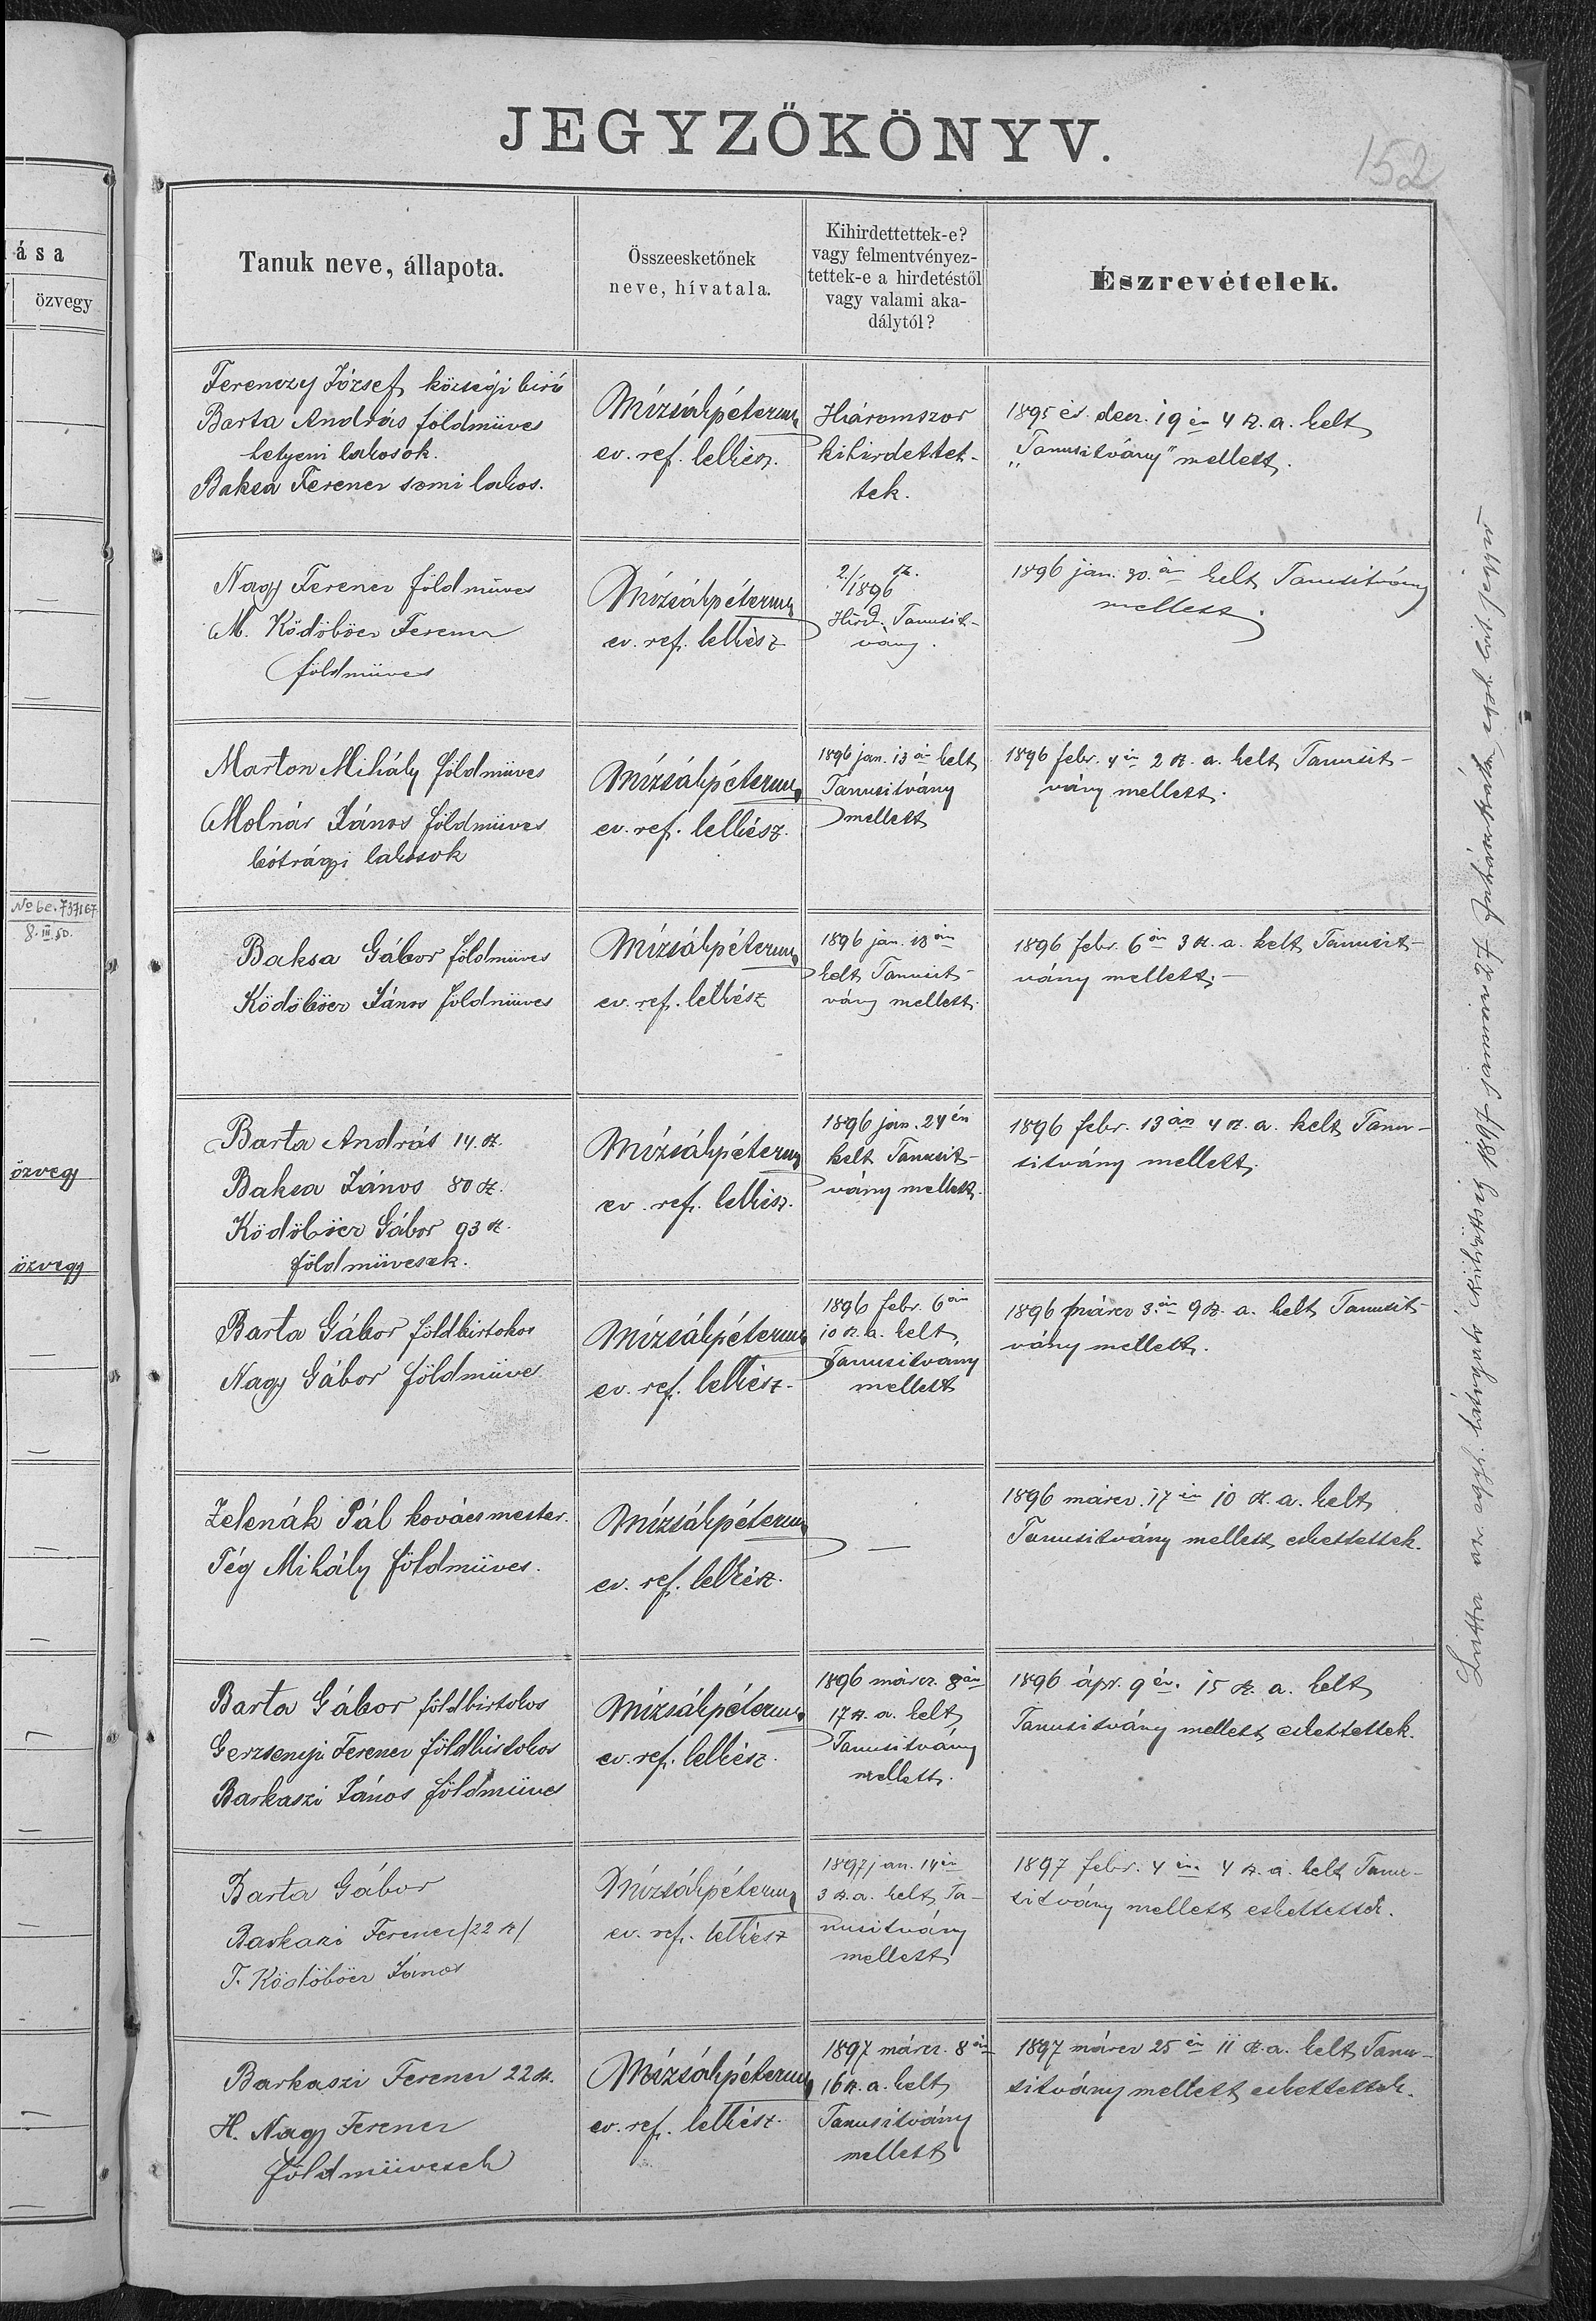 JEGYZŐKÖNYV.
152
lása
özvegy
No be. 737167.
8. III. 50.
özvegy
özvegy
Tanuk neve, állapota.
Összeesketőnek
neve, hívatala.
Kihirdettettek-e?
vagy felmentvényez-
tettek-e a hirdetéstől
vagy valami aka-
dálytól?
Észrevételek.
Ferenczy József községi biró
Barta András földmüves
helyeni lakosok.
Baksa Ferencz somi lakos.
Mizsák péterm
ev. ref. lelkész.
Háromszor
kihirdettet-
tek.
1895 év. decz. 19 én 4 sz. a. kelt
„Tanusitvány" mellett.
Nagy Ferencz földmüves
M. Ködöböcz Ferencz
földmüves
Mizsák péterm
ev. ref. lelkész
2./1896 sz.
Hird. Tanusit-
vány.
1896 jan. 30. án kelt Tanusitvány
mellett.
Marton Mihály földmüves
Molnár János földmüves
bótrágyi lakosok
Mizsák péterm
ev. ref. lelkész.
1896 jan. 13 án kelt
Tanusitvány
mellett
1896 febr. 4 én 2 sz. a. kelt Tanusit-
vány mellett.
Baksa Gábor földmüves
Ködöböcz János földmüves
Mizsák péterm
ev. ref. lelkész
1896 jan. 13 án
kelt Tanusit-
vány mellett.
1896 febr. 6 án 3 sz. a. kelt Tanusit-
vány mellett.-
Barta András 14. sz.
Baksa János 80 sz.
Ködöböcz Gábor 93 sz.
földmüvesek.
Mizsák péterm
ev. ref. lelkész.
1896 jan. 24 én
kelt Tanusit-
vány mellett.
1896 febr. 13 án 4 sz. a. kelt Tanu-
sitvány mellett.
Barta Gábor földbirtokos
Nagy Gábor földmüves
Mizsák péterm
ev. ref. lelkész.
1896 febr. 6 án
10 sz. a. kelt
Tanusitvány
mellett
1896 márcz 3. án 9 sz. a. kelt Tanusit-
vány mellett.
Zelenák Pál kovácsmester.
Tég Mihály földmüves.
Mizsák péterm
ev. ref. lelkész.
—
1896 márcz. 17 én 10 sz. a. kelt
Tanusitvány mellett eskettettek.
Barta Gábor földbirtokos
Gerzsenyi Ferencz földbirtokos
Barkaszi János földmüves
Mizsák péterm
ev. ref. lelkész.
1896 márcz. 8 án
17 sz. a. kelt
Tanusitvány
mellett.
1896 ápr. 9 én. 15 sz. a. kelt
Tanusitvány mellett eskettettek.
Barta Gábor
Barkaszi Ferencz /22 sz/
T. Ködöböcz János
Mizsák péterm
ev. ref. lelkész
1897 jan. 14 én
3 sz. a. kelt Ta-
nusitvány
mellett
1897 febr. 4 én. 4 sz. a. kelt Tanu-
sitvány mellett eskettettek.
Barkaszi Ferencz 22 sz.
H. Nagy Ferencz
földmüvesek
Mizsák péterm
ev. ref. lelkész.
1897 márcz. 8 án
16 sz. a. kelt
Tanusitvány
mellett
1897 márcz 25 én 11 sz. a. kelt Tanu-
sitvány mellett eskettettek.
Látta az egyh. látogató küldöttség 1897 januar 27